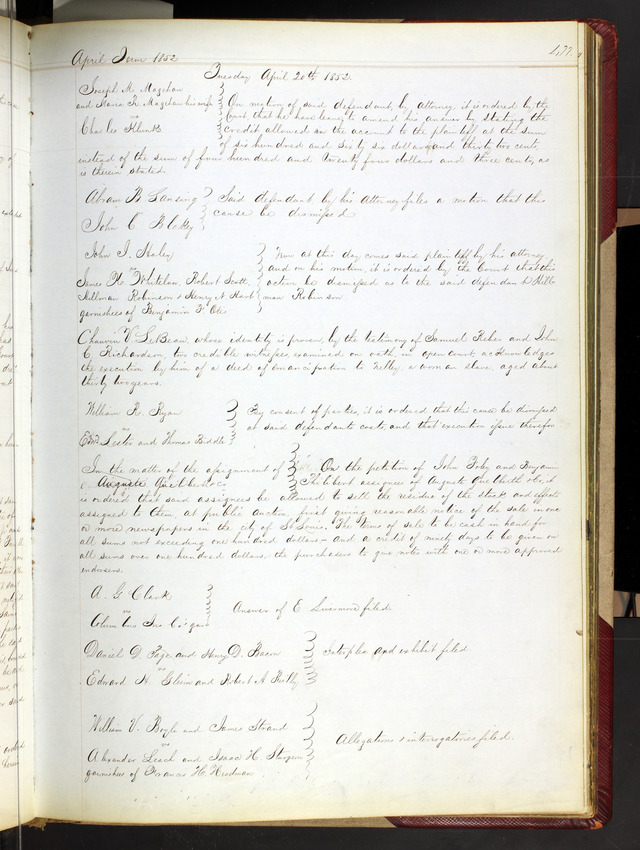 April Term 1852
477
Tuesday April 20th 1852
Joseph M. Magehan
and Maria R. Magehan his wife
vs
Charles Klunk
On motion of said defendant, by attorney it is ordered by the
Court that he have leave to amend his answer by stating the
credit allowed on the account to the plaintiff at the sum
of six hundred and sixty six dollars and thirty two cents
instead of the sum of four hundred and twenty four dollars and three cents, as
is therein stated.
Abram B. Lansing
vs
John C.
Said defendant by his attorney files a motion that this
cause be dismissed
John I. Haley
vs
James H. Whitelaw, Robert Scott,
Hillman Robinson & Henry N. Hart
garnishees of Benjamin F.
Now at this day comes said plaintiff by his attorney
and on his motion, it is ordered by the Court that this
action be dismissed as to the said defendant Hill-
man Robinson
Chauvin V. LeBeau, whose identity is proven, by the testimony of Samuel and John
C. Richardson, two credible witnesses, examined on oath, in open court, acknowledges
the execution by him of a deed of emancipation to Kelly, a woman slave, aged about
thirty two years.
William R. Ryan
vs
Edwd Lester and Thomas Biddle
By consent of parties, it is ordered that this cause be dismissed
at said defendants costs, and that execution issue therefor
In the matter of the assignment of
Auguste & Co
On the petition of John and Benjamin
assignees of Auguste & Co. it
is ordered that said assignees be allowed to sell the residue of the stock and effects
assigned to them at public auction, first giving reasonable notice of the sale in one
or more newspapers in the city of St Louis, The terms of sale to be cash in hand for
all sums not exceeding one hundred dollars – and a credit of ninety days to be given on
all sums over one hundred dollars, the purchasers to give notes with one or more approved
endorsers.
A. G. Clark
vs
Columbus Ins. Co.
Answer of E. Livermore filed
Daniel D. Page and Henry D. Bacon
vs
Edward H. and Robert A. Reilly
Interplea and exhibit filed
William V. Boyle and James Strand
vs
Alexander Leach and Isaac H. Sturgeon
garnishees of Francis H.
Allegations & interrogatories filed.